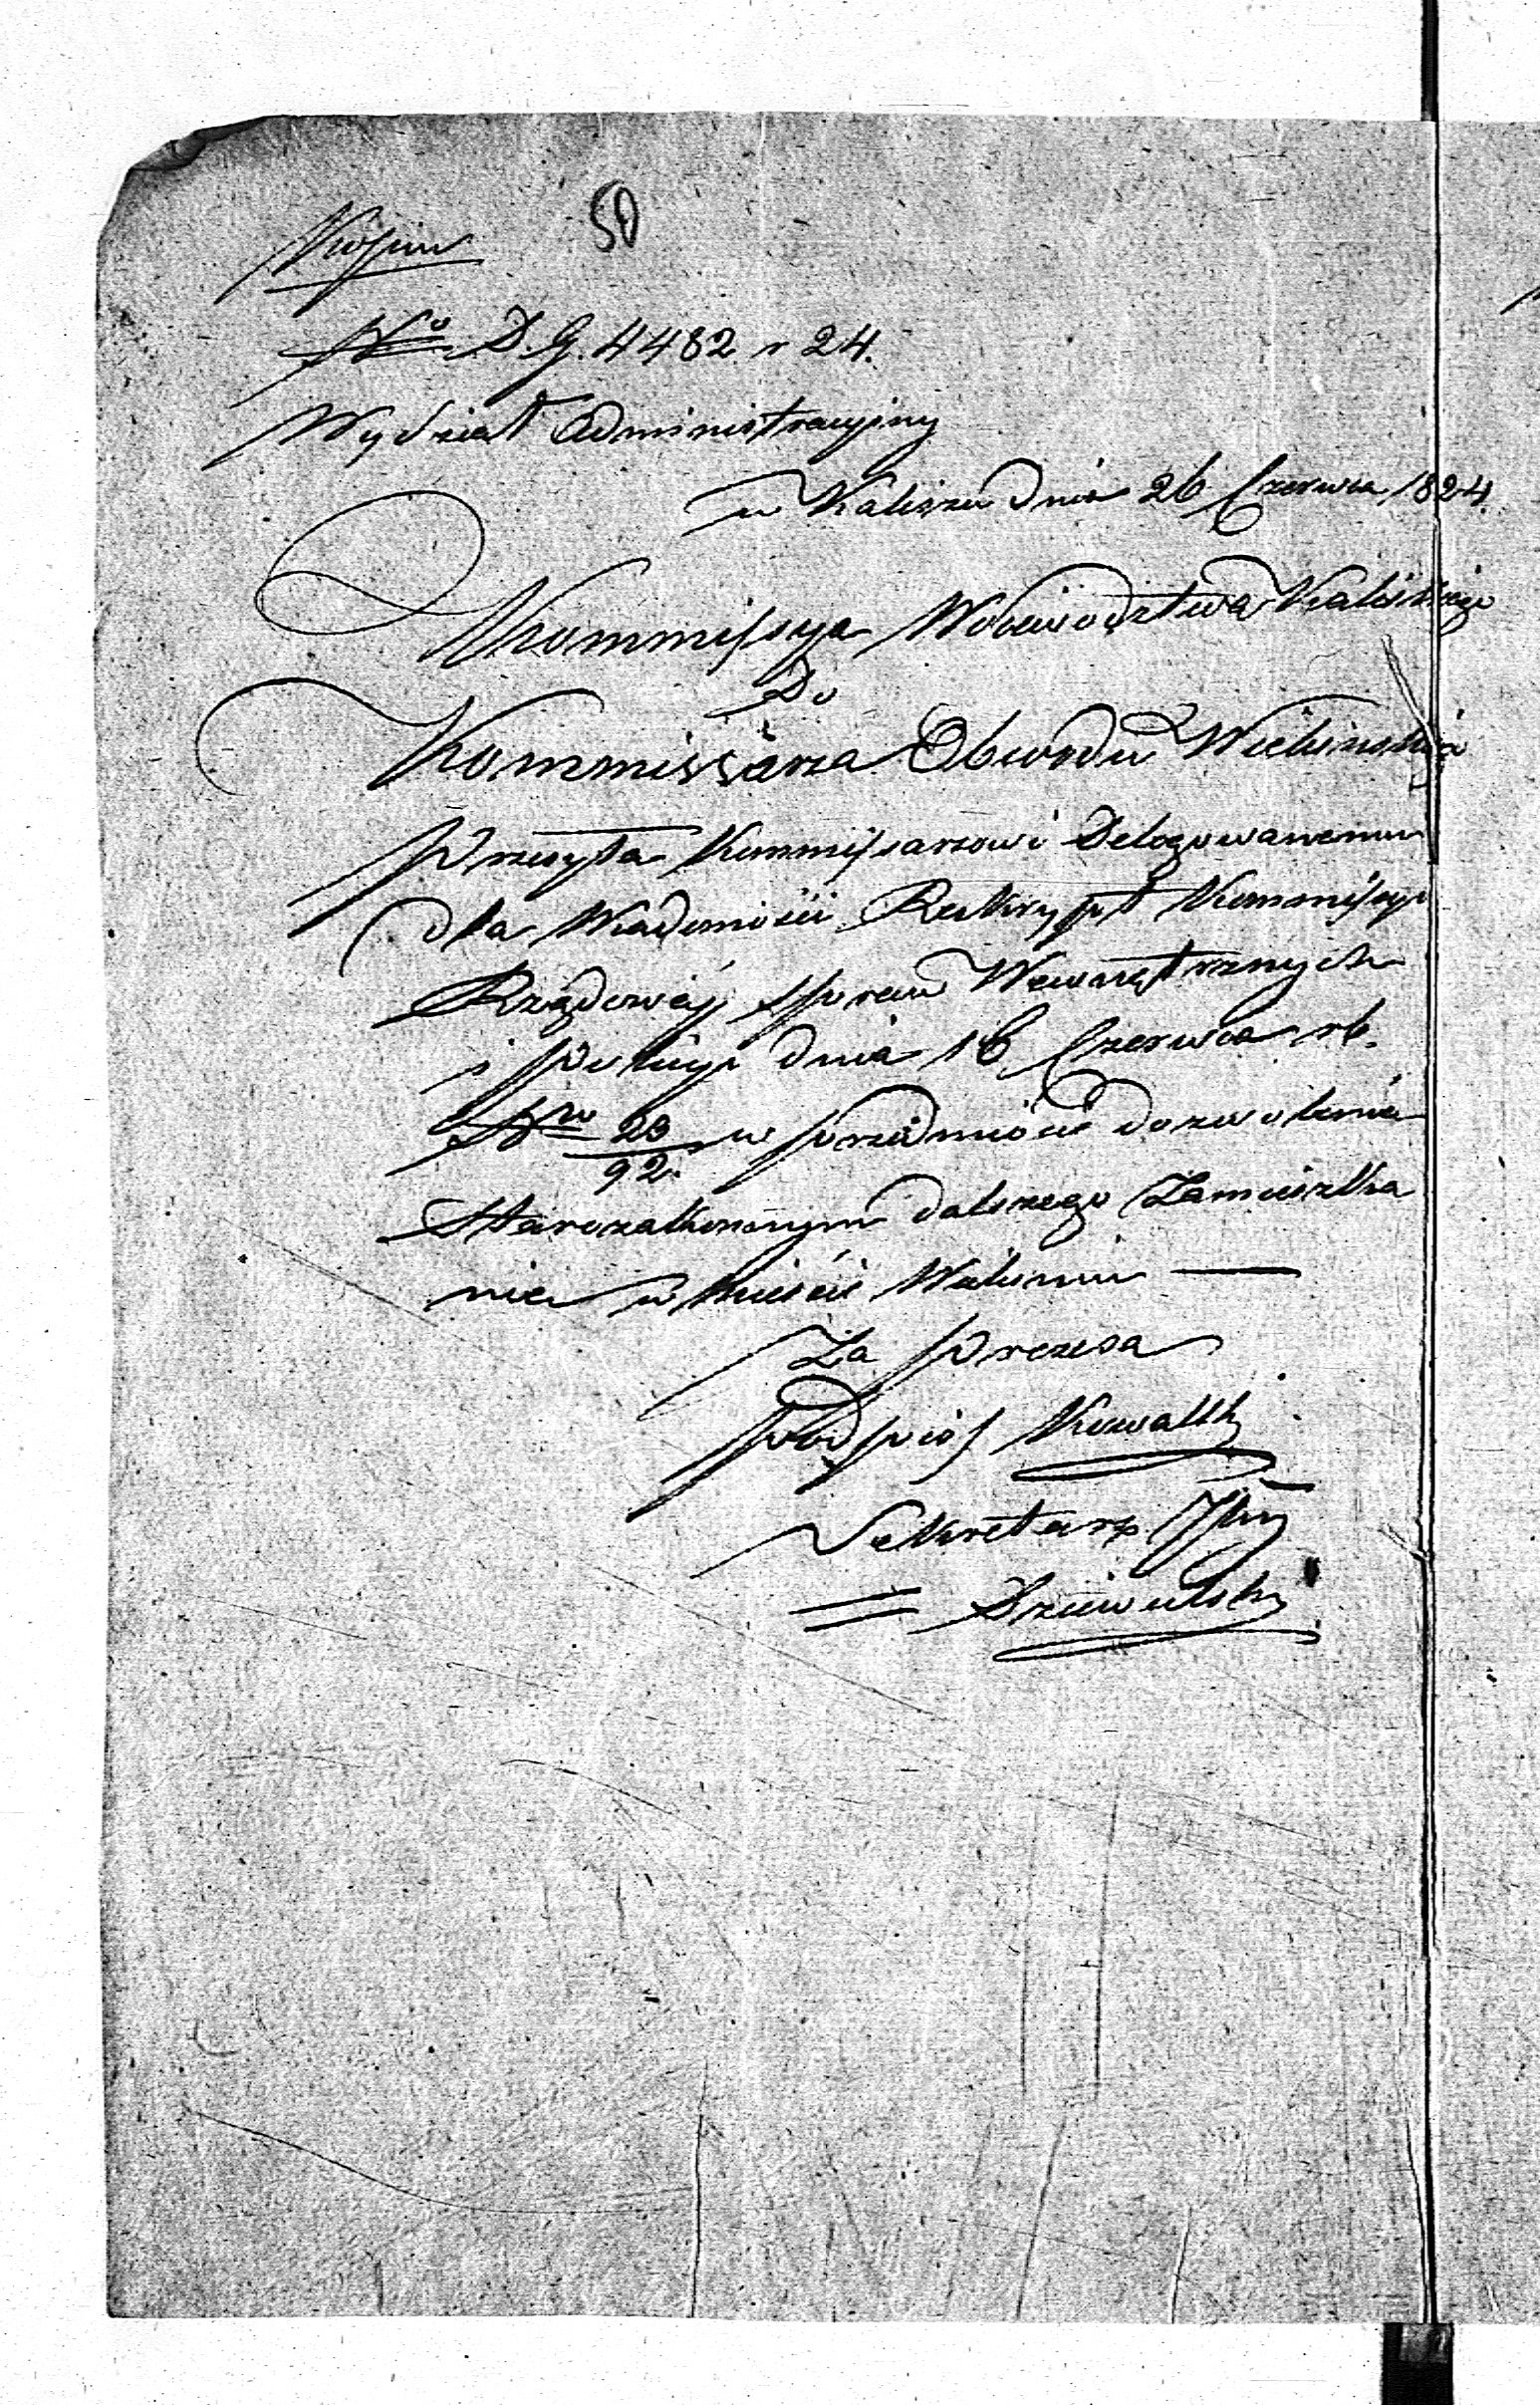 50
No D. G. 4482 r 24.
Wydział Administracyiny
w Kaliszu dnia 26 Czerwca 1824.
Kommissya Woiewództwa Kaliskiego
Do
Kommissarza Obwodu Wieluńskie
Przesyła Kommissarzowi Delegowanemu
dla Wiadomości Reskrypt Kommissyi
Rządowéy Spraw Wewnętrznych
i Policyi dnia 16 Czerwca rb.
No 23/92 w przedmiocie dozwolenia
Starozakonnym dalszego Zamieszka
nia w Mieście Wieluniu —
Za Prezesa
podpis Kowalski
Sekretarz Jlny
= Dziewulski